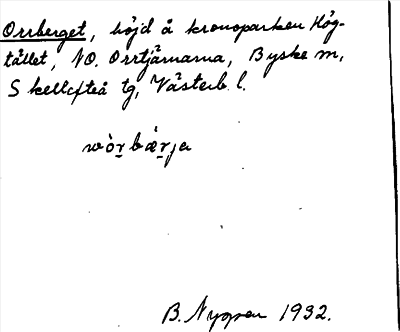 Orrberget, höjd å kronoparken Hög-
tället, NO. Orrtjärnarna, Byske m,
Skellefteå tg, Västerb. l.
wòr̠bæ̀r̠ja
B. Nygren 1932.